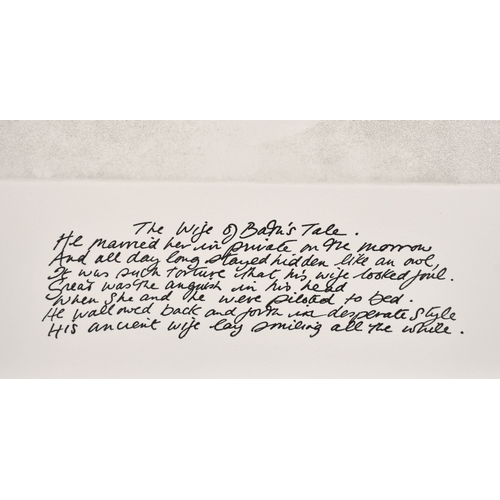 The Wife of Bath's Tale.
He married her in private on the morrow
And all day long stayed hidden like an owl,
It was such torture that his wife looked foul.
Great was the anguish in his head
When she and he were piloted to bed.
He wallowed back and forth in desperate style
His ancient wife lay smiling all the while.